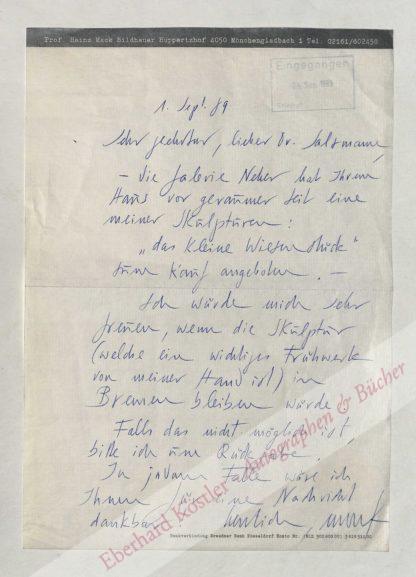 Prof. Heinz Mack Bildhauer Huppertzhof 4050 Mönchengladbach 1 Tel. 02161/602458
Eingegangen
Sep. 1989
1. Sept. 89
Sehr geehrter, lieber Dr. Salzmann,
– die Galerie Neher hat Ihrem
Haus vor geraumer Zeit eine
meiner Skulpturen:
„das kleine Wiesenstück"
zum Kauf angeboten. –
Ich würde mich sehr
freuen, wenn die Skulptur
(welche ein wichtiges Frühwerk
von meiner Hand ist) in
Bremen bleiben würde
Falls das nicht möglich ist,
bitte ich um Rückgabe.
In jedem Falle wäre ich
Ihnen für eine Nachricht
dankbar herzlich, Mack
Bankverbindung Dresdner Bank Düsseldorf Konto Nr.
Eberhard Köstler Autographen & Bücher